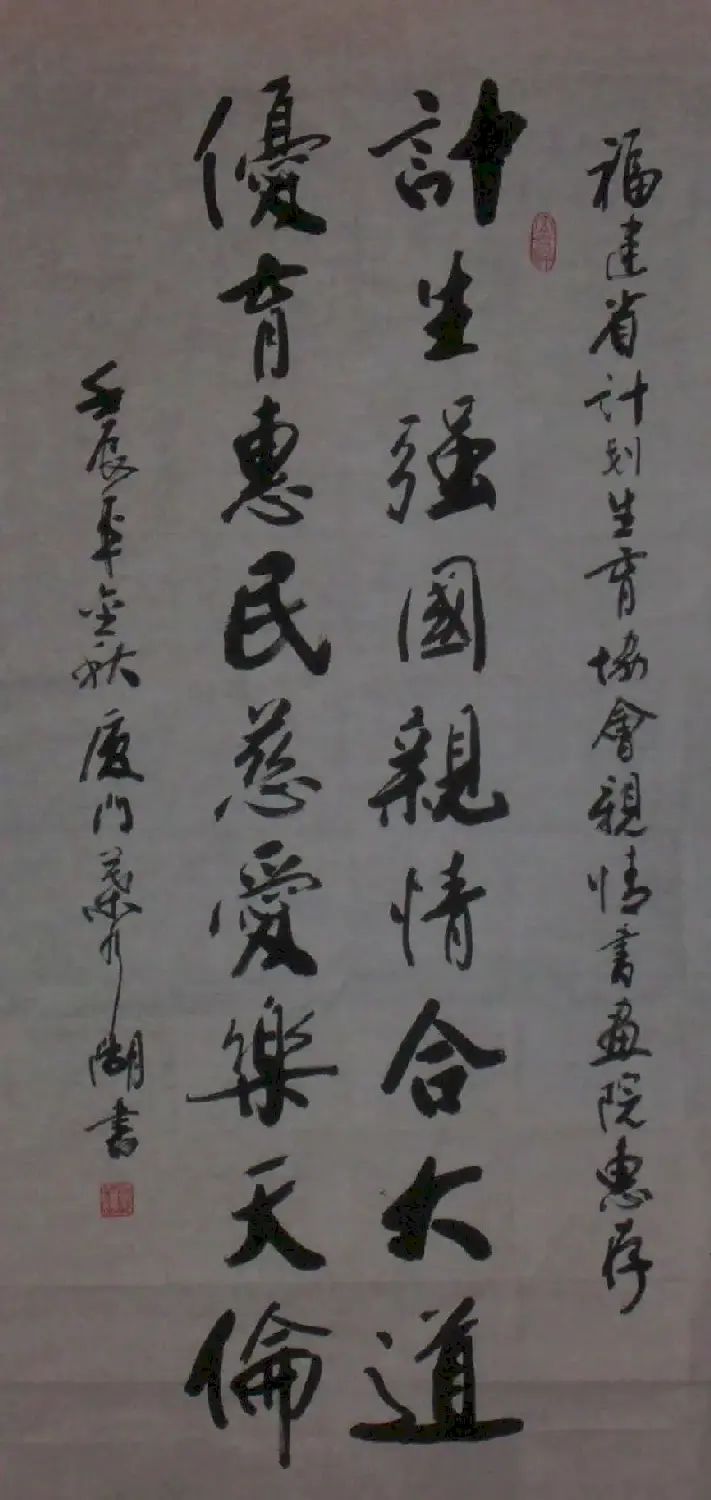 福建省计划生育協會親情書畫院惠存
計生强國親情合大道
優育惠民慈愛樂天倫
壬辰年金秋廈门葉水湖書